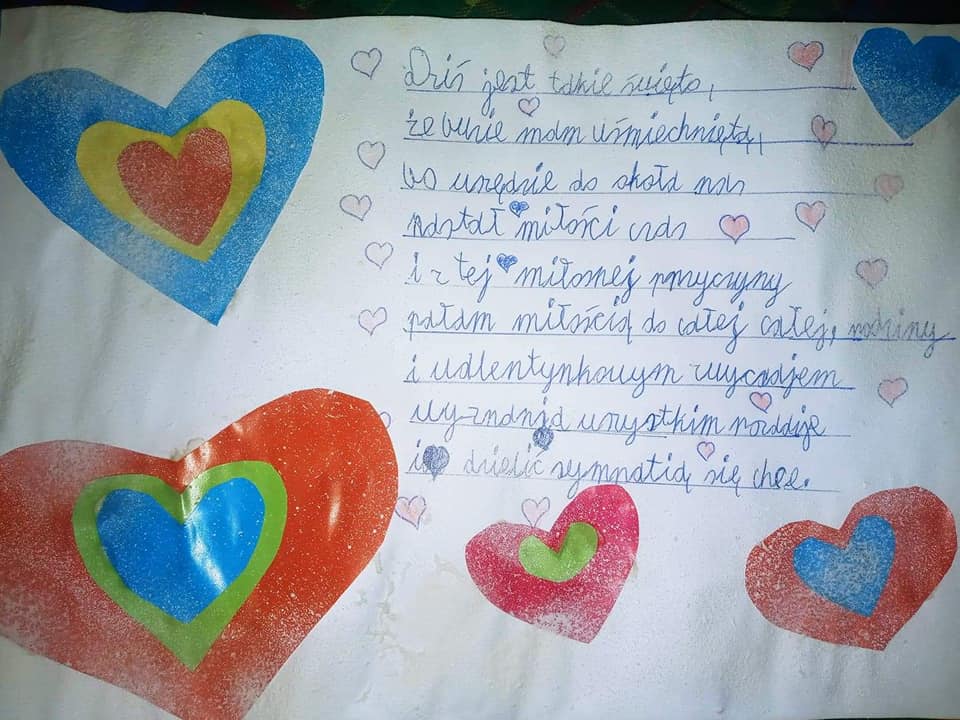 Dziś jest takie święto,
że buzie mam uśmiechniętą,
bo wszędzie do okoła nas
nastał miłości czas
i z tej miłosnej przyczyny
pałam miłością do całej całej, rodziny
i walentynkowym zwyczajem
wyznania wszystkim rozdaje
i dzielić sympatią się chce.